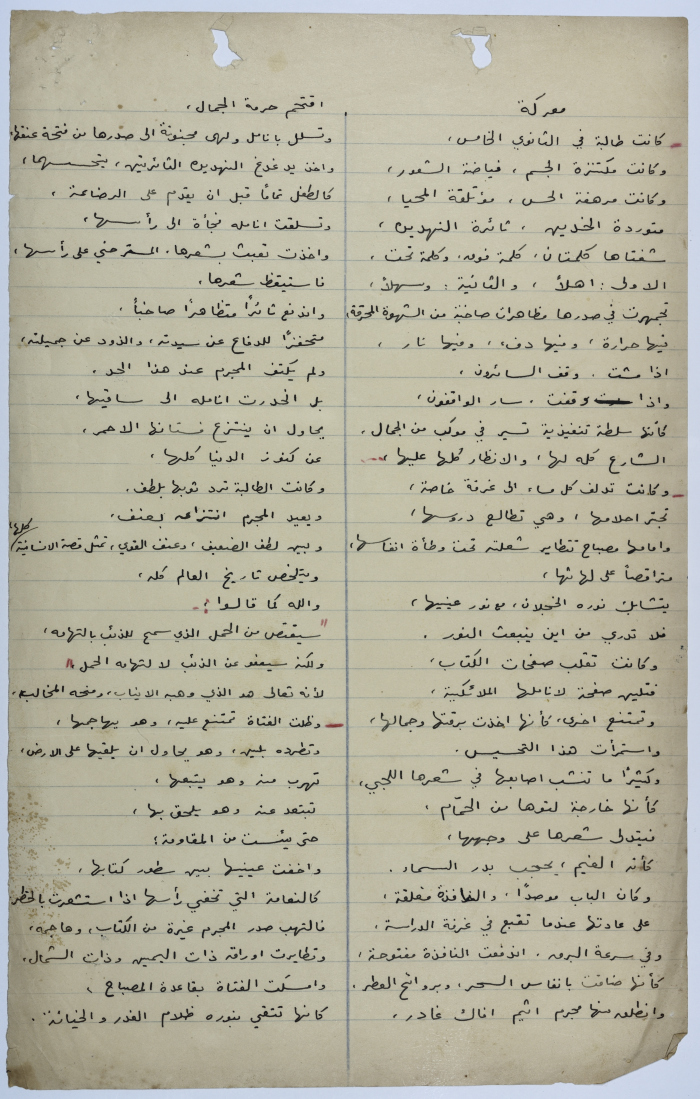 معركة
كانت طالبة في الثانوي الخامس،
وكانت مكتنزة الجسم، فياضة الشعور،
وكانت مرهفة الحس، مؤتلقة المحيا،
متوردة الخدين، ثائرة النهدين،
شفتاها كلمتان، كلمة فوق، وكلمة تحت،
الاولى: اهلاً، والثانية: وسهلاً،
تجمهرت في صدرها مظاهرات صاخبة من الشهوة المحرقة،
فيها حرارة، وفيها دفء، وفيها نار،
اذا مشت. وقف السائرون،
واذا وقفت. سار الواقفون،
كأنها سلطة تنفيذية تسير في موكب من الجمال.
الشارع كله لها، والانظار كلها عليها،
وكانت تدلف كل مساء، الى غرفة خاصة،
تجتر احلامها، وهي تطالع دروسها،
وامامها مصباح تتطاير شعلته تحت وطأة انفاسها،
متراقصاً على لهاثها،
يتشابك نوره الخجلان، مع نور عينيها،
فلا تدري من اين ينبعث النور.
وكانت تقلب صفحات الكتاب،
فتلين صفحة لاناملها الملائكية،
وتمتنع اخرى، كأنها اخذت برقتها وجمالها،
واستمرأت هذا التحسيس.
وكثيرًا ما تنشب اصابعها في شعرها اللجي،
كأنها خارجة لتوها من الحمّام،
فيتدلى شعرها على وجهها،
كأنه الغيم، يحجب بدر السماء.
وكان الباب موصدًا. والنافذة مغلقة،
على عادتها عندما تقبع في غرفة الدراسة،
وفي سرعة البرق. اندفعت النافذة مفتوحة،
كأنها ضاقت بانفاس السحر، وبروائح العطر.
وانطلق منها مجرم اثيم افاك غادر،
اقتحم حرمة الجمال،
وتسلل بانامل ولهى مجنونة الى صدرها من فتحة عنقها،
واخذ يدغدغ النهدين الثائرتين، يتحسسهما،
كالطفل تمامًا قبل ان يقدم على الرضاعة،
وتسلقت انامله فجأة الى رأسها،
واخذت تعبث بشعرها. المسترخي على رأسها،
فاستيقظ شعرها،
واندفع ثائرًا متظاهرًا صاخبًا.
متحفزًا للدفاع عن سيدته، والذود عن جميلته،
ولم يكتف المجرم عند هذا الحد.
بل انحدرت انامله الى ساقيها،
يحاول ان ينتزع فستانها الاحمر،
عن كنوز الدنيا كلها،
وكانت الطالبة ترد ثوبها بلطف.
ويعيد المجرم انتزاعه بعنف،
وبين لطف الضعيف، وعنف القوي، تمثل قصة الانسانية كلها،
ويتلخص تاريخ العالم كله،
والله كما قالوا:-
"سيقتص من الحمل الذي سمح للذئب بالتهامه،
ولكنه سيعفو عن الذئب لالتهامه الحمل"
لأنه تعالى هو الذي وهبه الانياب، ومنحه المخالب،
وظلت الفتاة تمتنع عليه، وهو يهاجمها،
وتطرده بلين، وهو يحاول ان يلقيها على الارض،
تهرب منه وهو يتبعها،
تبتعد عنه وهو يلحق بها،
حتى يئست من المقاومة؛
واخفت عينيها بين سطور كتابها،
كالنعامة التي تخفي رأسها اذا استشعرت بالخطر
فالتهب صدر المجرم غيرة من الكتاب، وهاجمه،
وتطايرت اوراقه ذات اليمين وذات الشمال.
وامسكت الفتاة بقاعدة المصباح،
كأنها تتقي بنوره ظلام الغدر والخيانة.